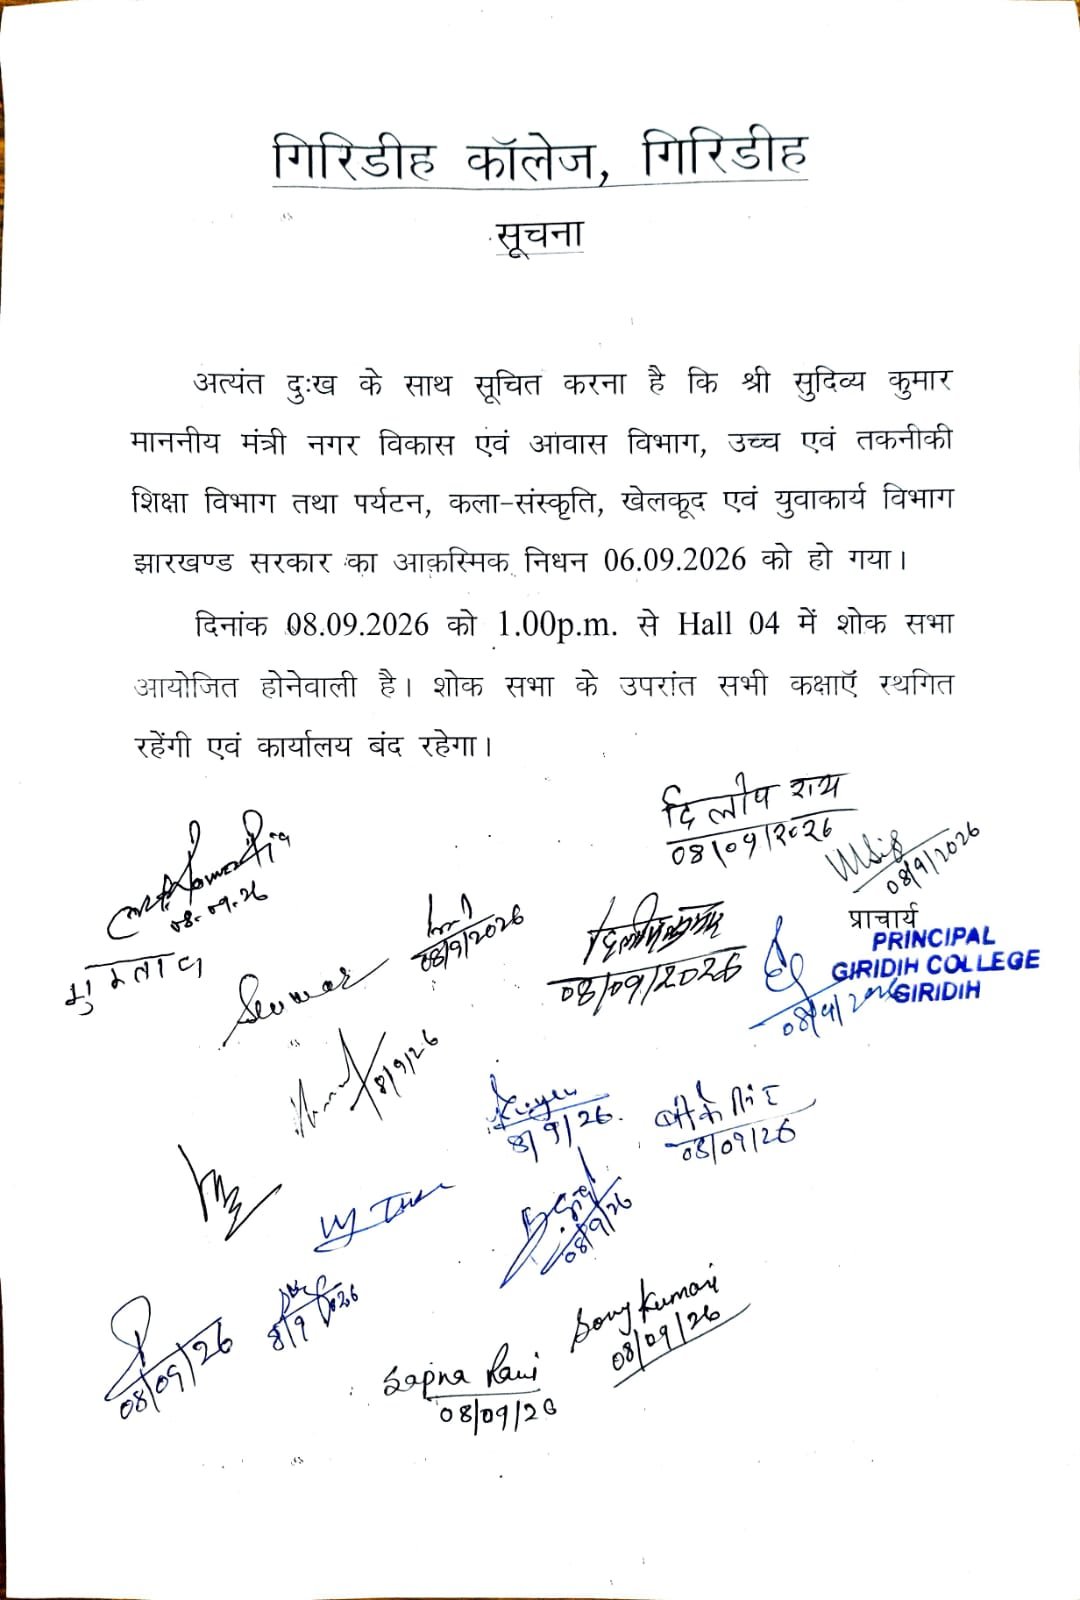 गिरिडीह कॉलेज, गिरिडीह
सूचना
अत्यंत दुःख के साथ सूचित करना है कि श्री सुदिव्य कुमार
माननीय मंत्री नगर विकास एवं आवास विभाग, उच्च एवं तकनीकी
शिक्षा विभाग तथा पर्यटन, कला-संस्कृति, खेलकूद एवं युवाकार्य विभाग
झारखण्ड सरकार का आकस्मिक निधन 06.09.2026 को हो गया।
दिनांक 08.09.2026 को 1.00p.m. से Hall 04 में शोक सभा
आयोजित होनेवाली है। शोक सभा के उपरांत सभी कक्षाऍ स्थगित
रहेंगी एवं कार्यालय बंद रहेगा।
दिलीप राय
08/09/2026
08/9/2026
08.09.26
08/9/2026
08/09/2026
प्राचार्य
PRINCIPAL
GIRIDIH COLLEGE
GIRIDIH
08/9/2026
8/9/26
8/9/26.
08/09/26
08/9/26
8/9/2026
08/09/26
Sony Kumari
08/09/26
Sapna Rani
08/09/26